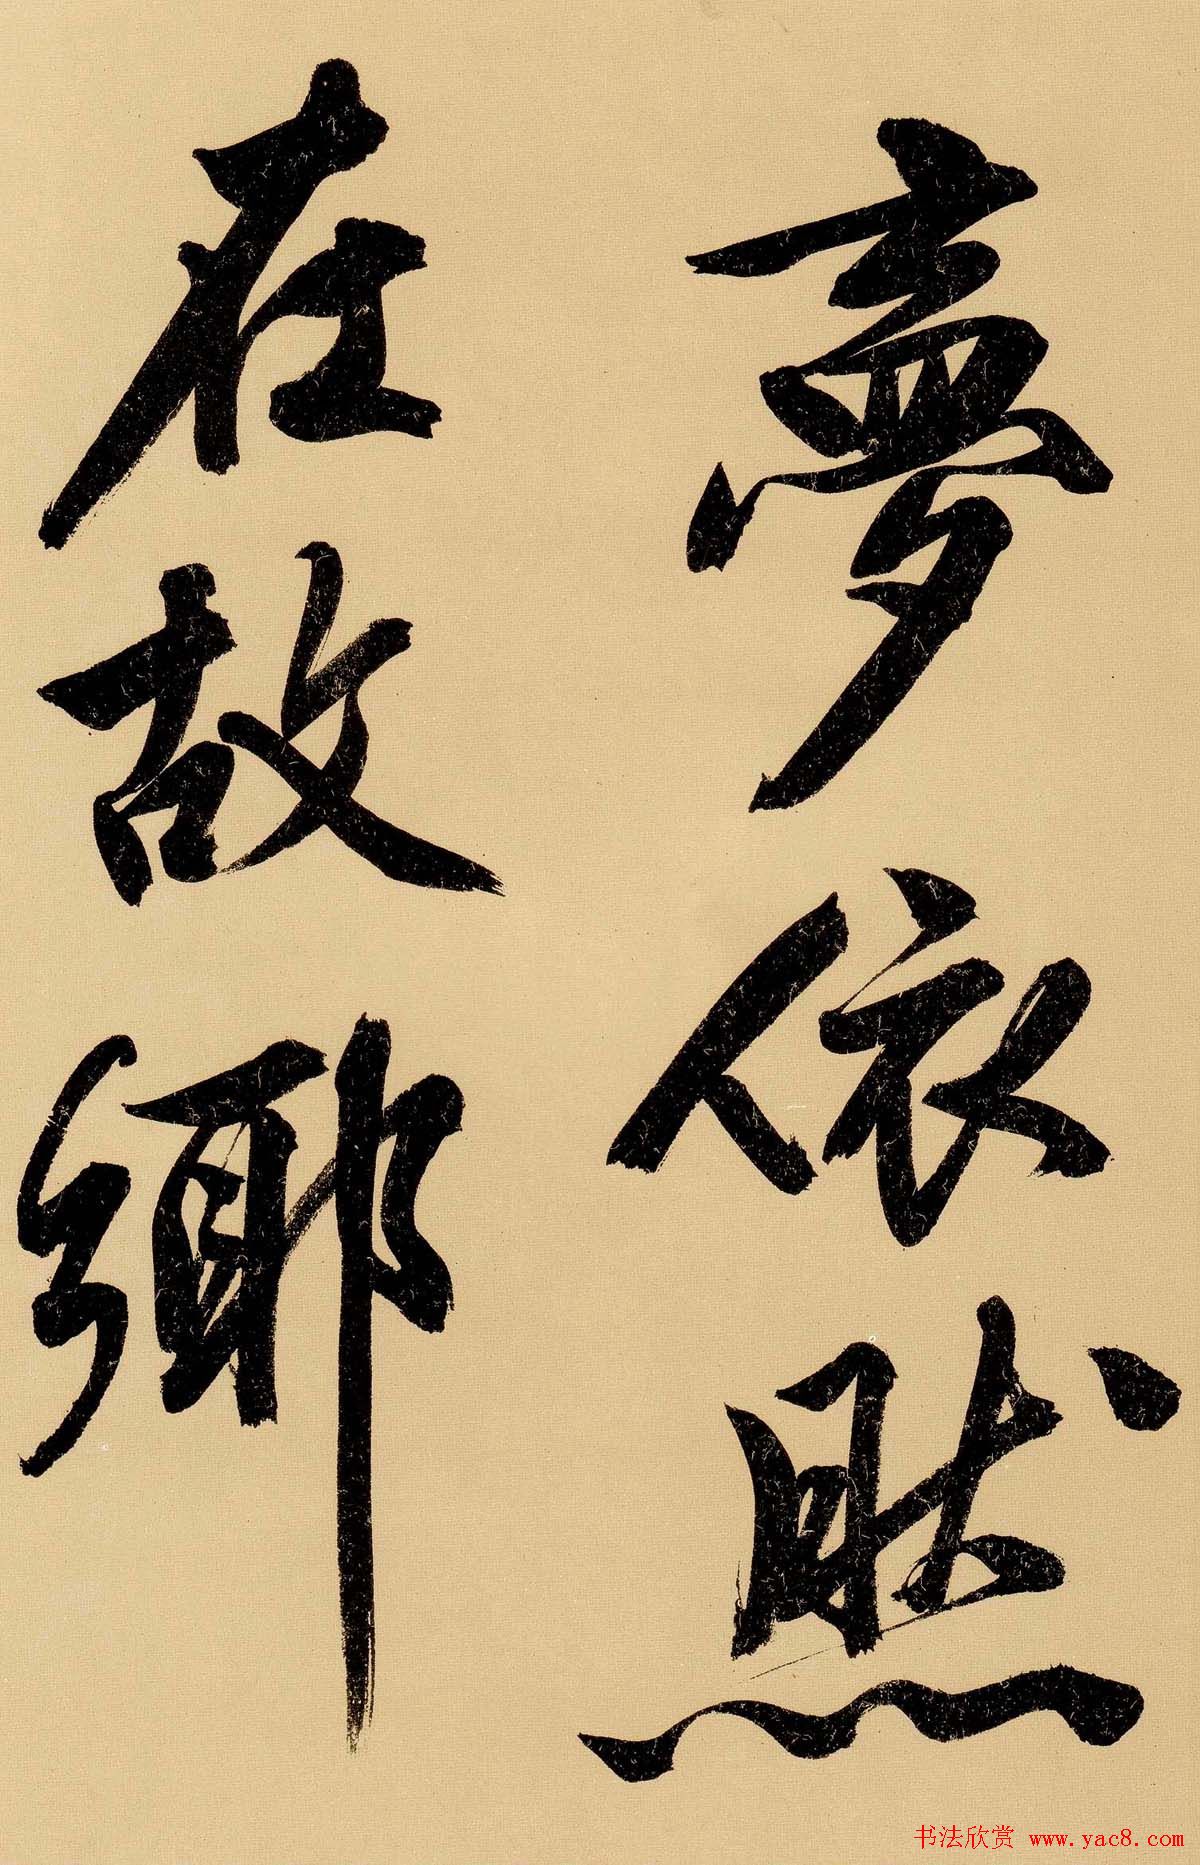 夢依然
在故鄉
书法欣赏 www.yac8.com